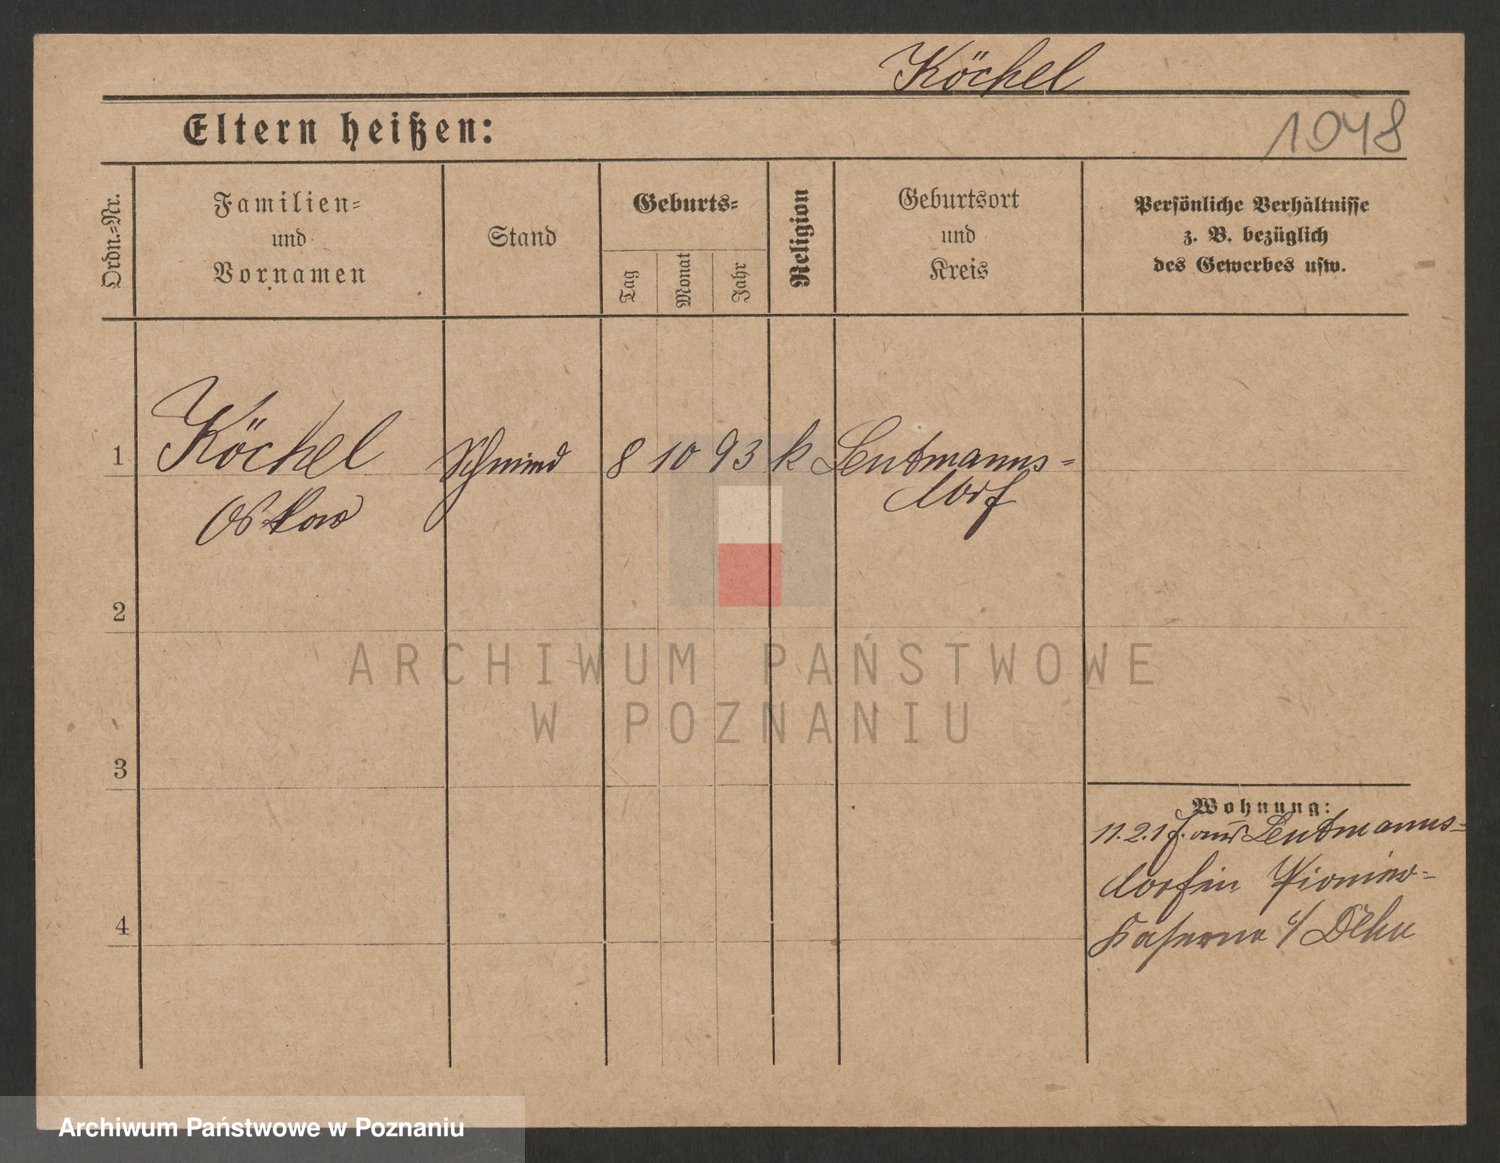 Köchel
Eltern heißen:
1048
Ordn.-Nr.
Familien-
und
Vornamen
Stand
Geburts-
Tag
Monat
Jahr
Religion
Geburtsort
und
Kreis
Persönliche Verhältnisse
z. B. bezüglich
des Gewerbes usw.
1
Köchel
Oskar
Schmied
8 10 93 k Leutmanns-
dorf
2
ARCHIWUM PAŃSTWOWE
W POZNANIU
3
Wohnung:
11.2.1 aus Leutmanns-
dorf in Pionier-
Kaserne
4
Archiwum Państwowe w Poznaniu